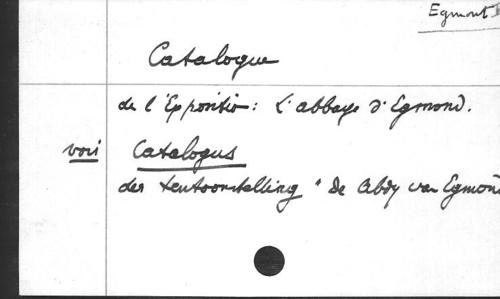 Egmont
Catalogue
de l'Exposition: L'abbaye d'Egmond.
voir Catalogus
der tentoonstelling "De Abdij van Egmond